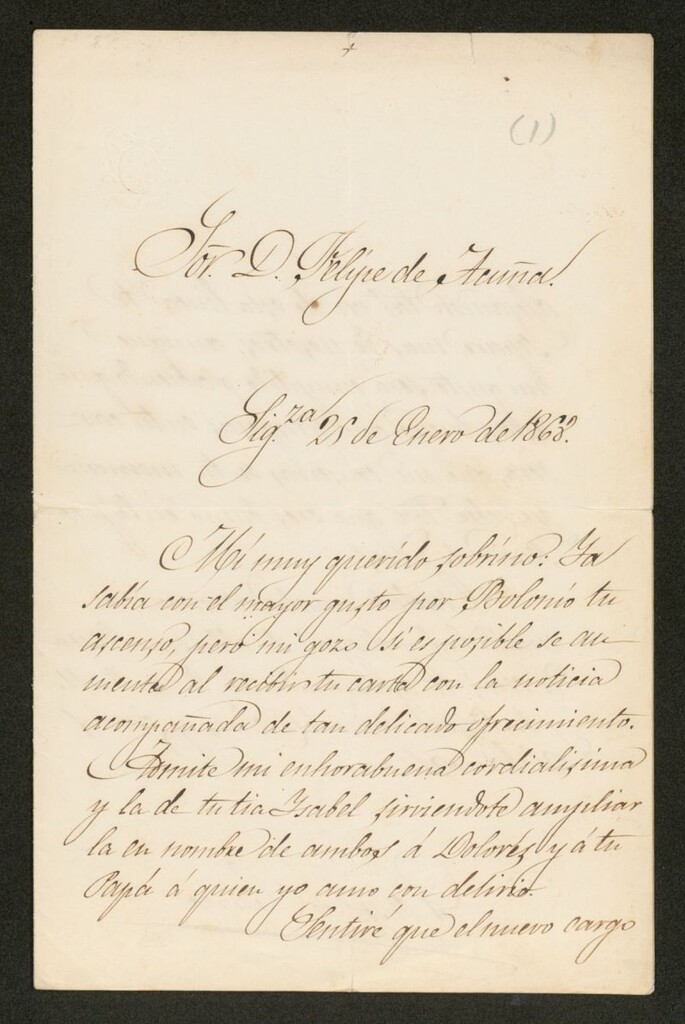 (1)
Sor. D. Felipe de Acuña.
Sig.za 25 de Enero de 1863.
Mi muy querido sobrino: Ya
sabía con el mayor gusto por Bolonio tu
ascenso, pero mi gozo si es posible se au
menta al recibir tu carta con la noticia
acompañada de tan delicado ofrecimiento.
Admite mi enhorabuena cordialisima
y la de tu tia Isabel sirviendote ampliar
la en nombre de ambos á Dolores y á tu
Papá á quien yo amo con delirio.
Sentiré que el nuevo cargo